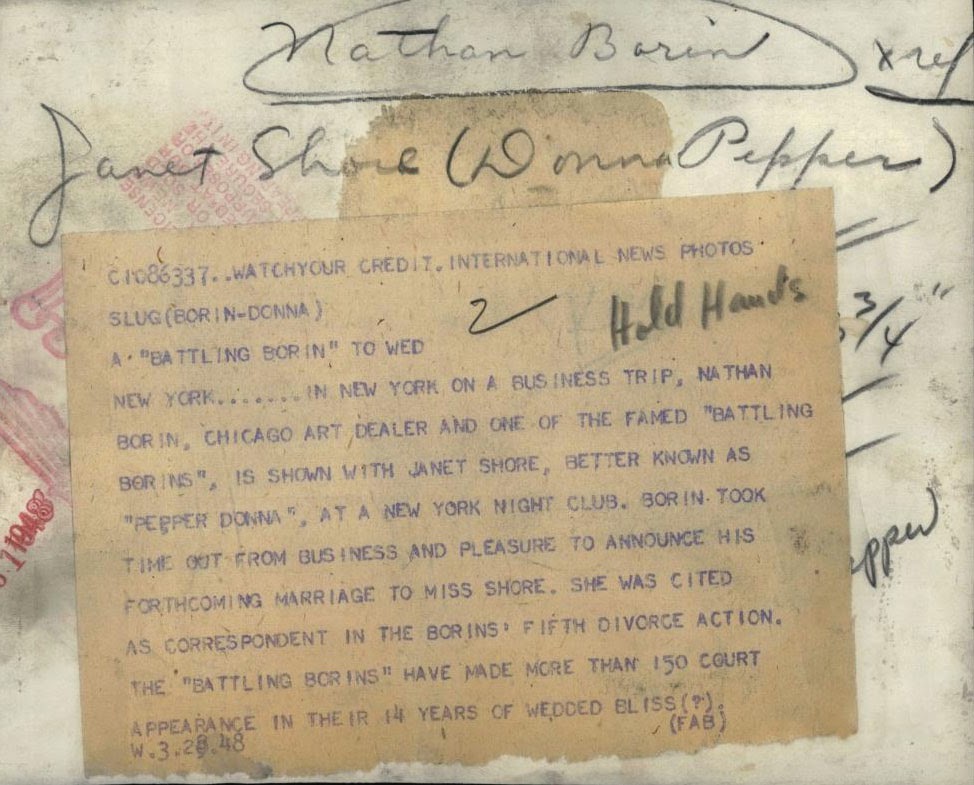 Nathan Borin xref
Janet Shore (Donna Pepper)
CIO86337..WATCHYOUR CREDIT.INTERNATIONAL NEWS PHOTOS
SLUG(BORIN-DONNA)
2
Hold Hands
A "BATTLING BORIN" TO WED
NEW YORK.......IN NEW YORK ON A BUSINESS TRIP, NATHAN
BORIN, CHICAGO ART DEALER AND ONE OF THE FAMED "BATTLING
BORINS", IS SHOWN WITH JANET SHORE, BETTER KNOWN AS
"PEPPER DONNA", AT A NEW YORK NIGHT CLUB. BORIN TOOK
TIME OUT FROM BUSINESS AND PLEASURE TO ANNOUNCE HIS
FORTHCOMING MARRIAGE TO MISS SHORE. SHE WAS CITED
AS CORRESPONDENT IN THE BORINS' FIFTH DIVORCE ACTION.
THE "BATTLING BORINS" HAVE MADE MORE THAN 150 COURT
APPEARANCE IN THEIR 14 YEARS OF WEDDED BLISS(?).
(FAB)
W.3.28.48
3/4"
1948